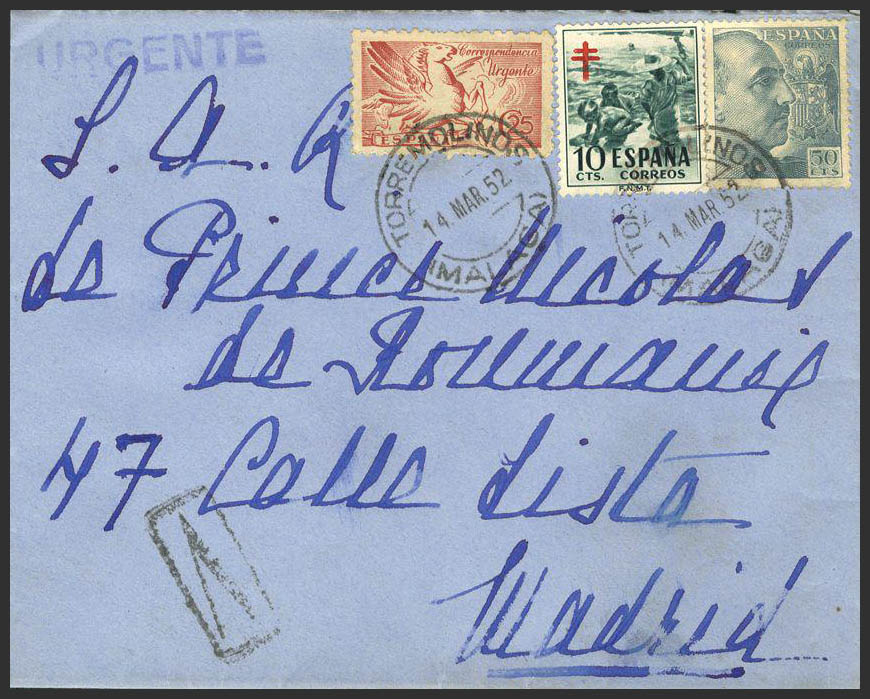 URGENTE
Correspondencia
Urgente
ESPAÑA
25
10 ESPAÑA
CTS. CORREOS
F.N.M.T.
ESPAÑA
CORREOS
50
CTS
TORREMOLINOS
14. MAR. 52
(MALAGA)
TORREMOLINOS
14. MAR. 52
(MALAGA)
S. A. R
Le Prince Nicolas
de Roumanie
47 Calle Lista
Madrid